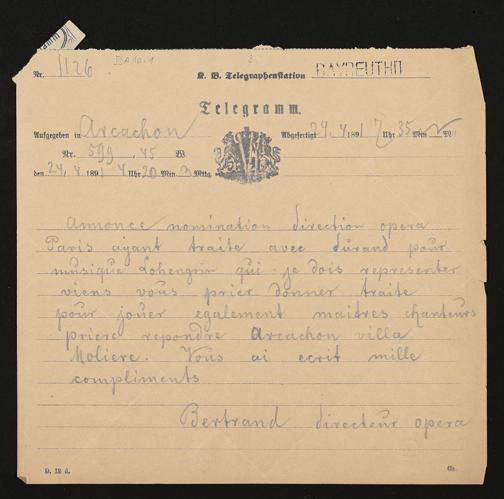 Nr. 1126 III A 10.1 2 K. B. Telegraphenstation BAYREUTH
Telegramm.
Aufgegeben in Arcachon Abgefertigt 24/4 1891 7 Uhr 35 Min
Nr. 599 45 W.
den 24/4 1891 4 Uhr 20 Min Mttg
Annonce nomination direction opera
Paris ayant traite avec durand pour
musique Lohengrin qui je dois representer
viens vous prier donner traite
pour jouer egalement maitres chanteurs
priere repondre Arcachon villa
Moliere. Vous ai ecrit mille
compliments
Bertrand directeur opera